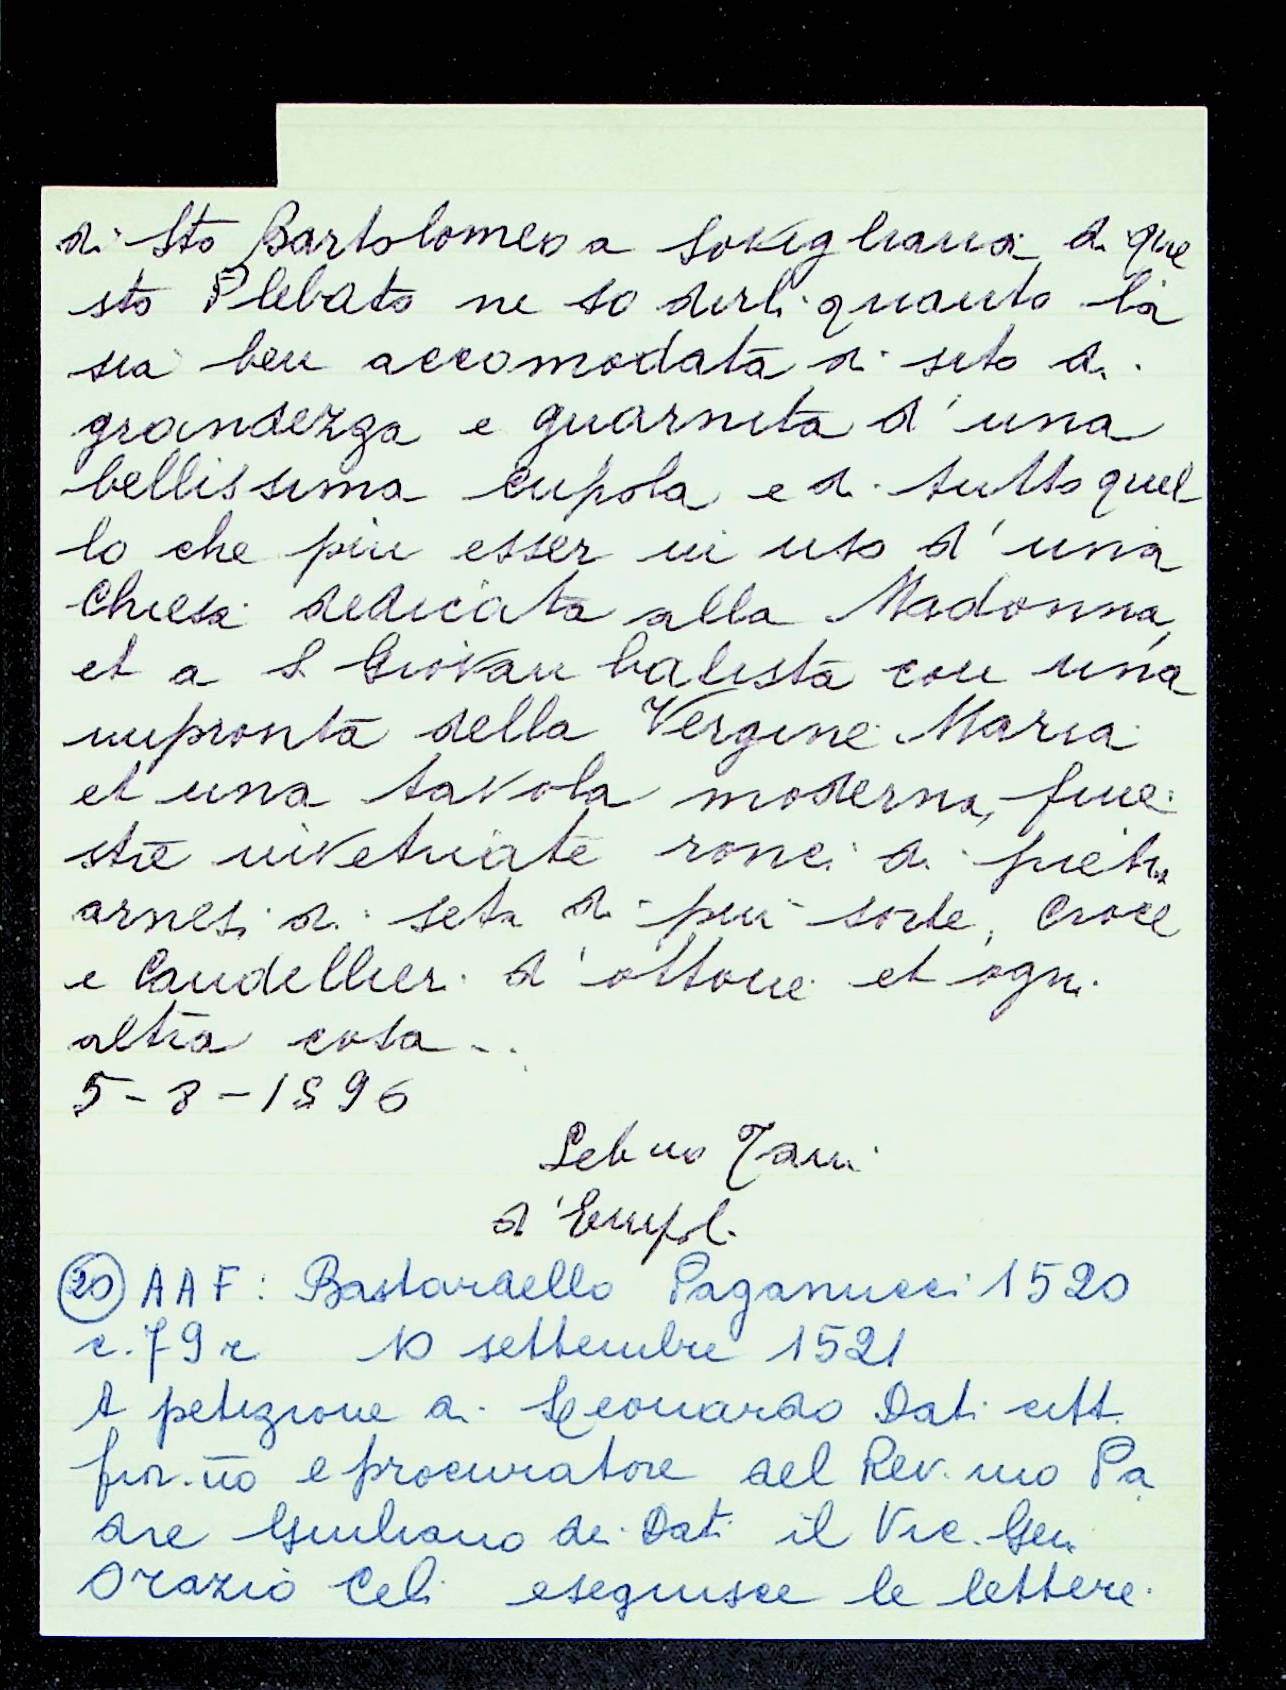 di Sto Bartolomeo a Sovigliana di que
sto Plebato ne so dirli quanto la
sia ben accomodata di sito di
grandezza e guarnita d'una
bellissima cupola e di tutto quel
lo che più esser in uso d'una
Chiesa dedicata alla Madonna,
et a S. Giovan batista con una
impronta della Vergine Maria
et una tavola moderna, fine
stre invetriate ronci di pietra
arnesi di seta di più sorte, Croce
e Candellieri d'ottone et ogni
altra cosa ..
5-8-1596
d'Empoli
(20) AAF: Bastardello Paganucci 1520
c. 79 r 10 settembre 1521
A petizione di Leonardo Dati citt.
fior.no e procuratore del Rev.mo Pa
dre Giuliano de Dati il Vic. Gen.
Orazio Celi eseguisce le lettere